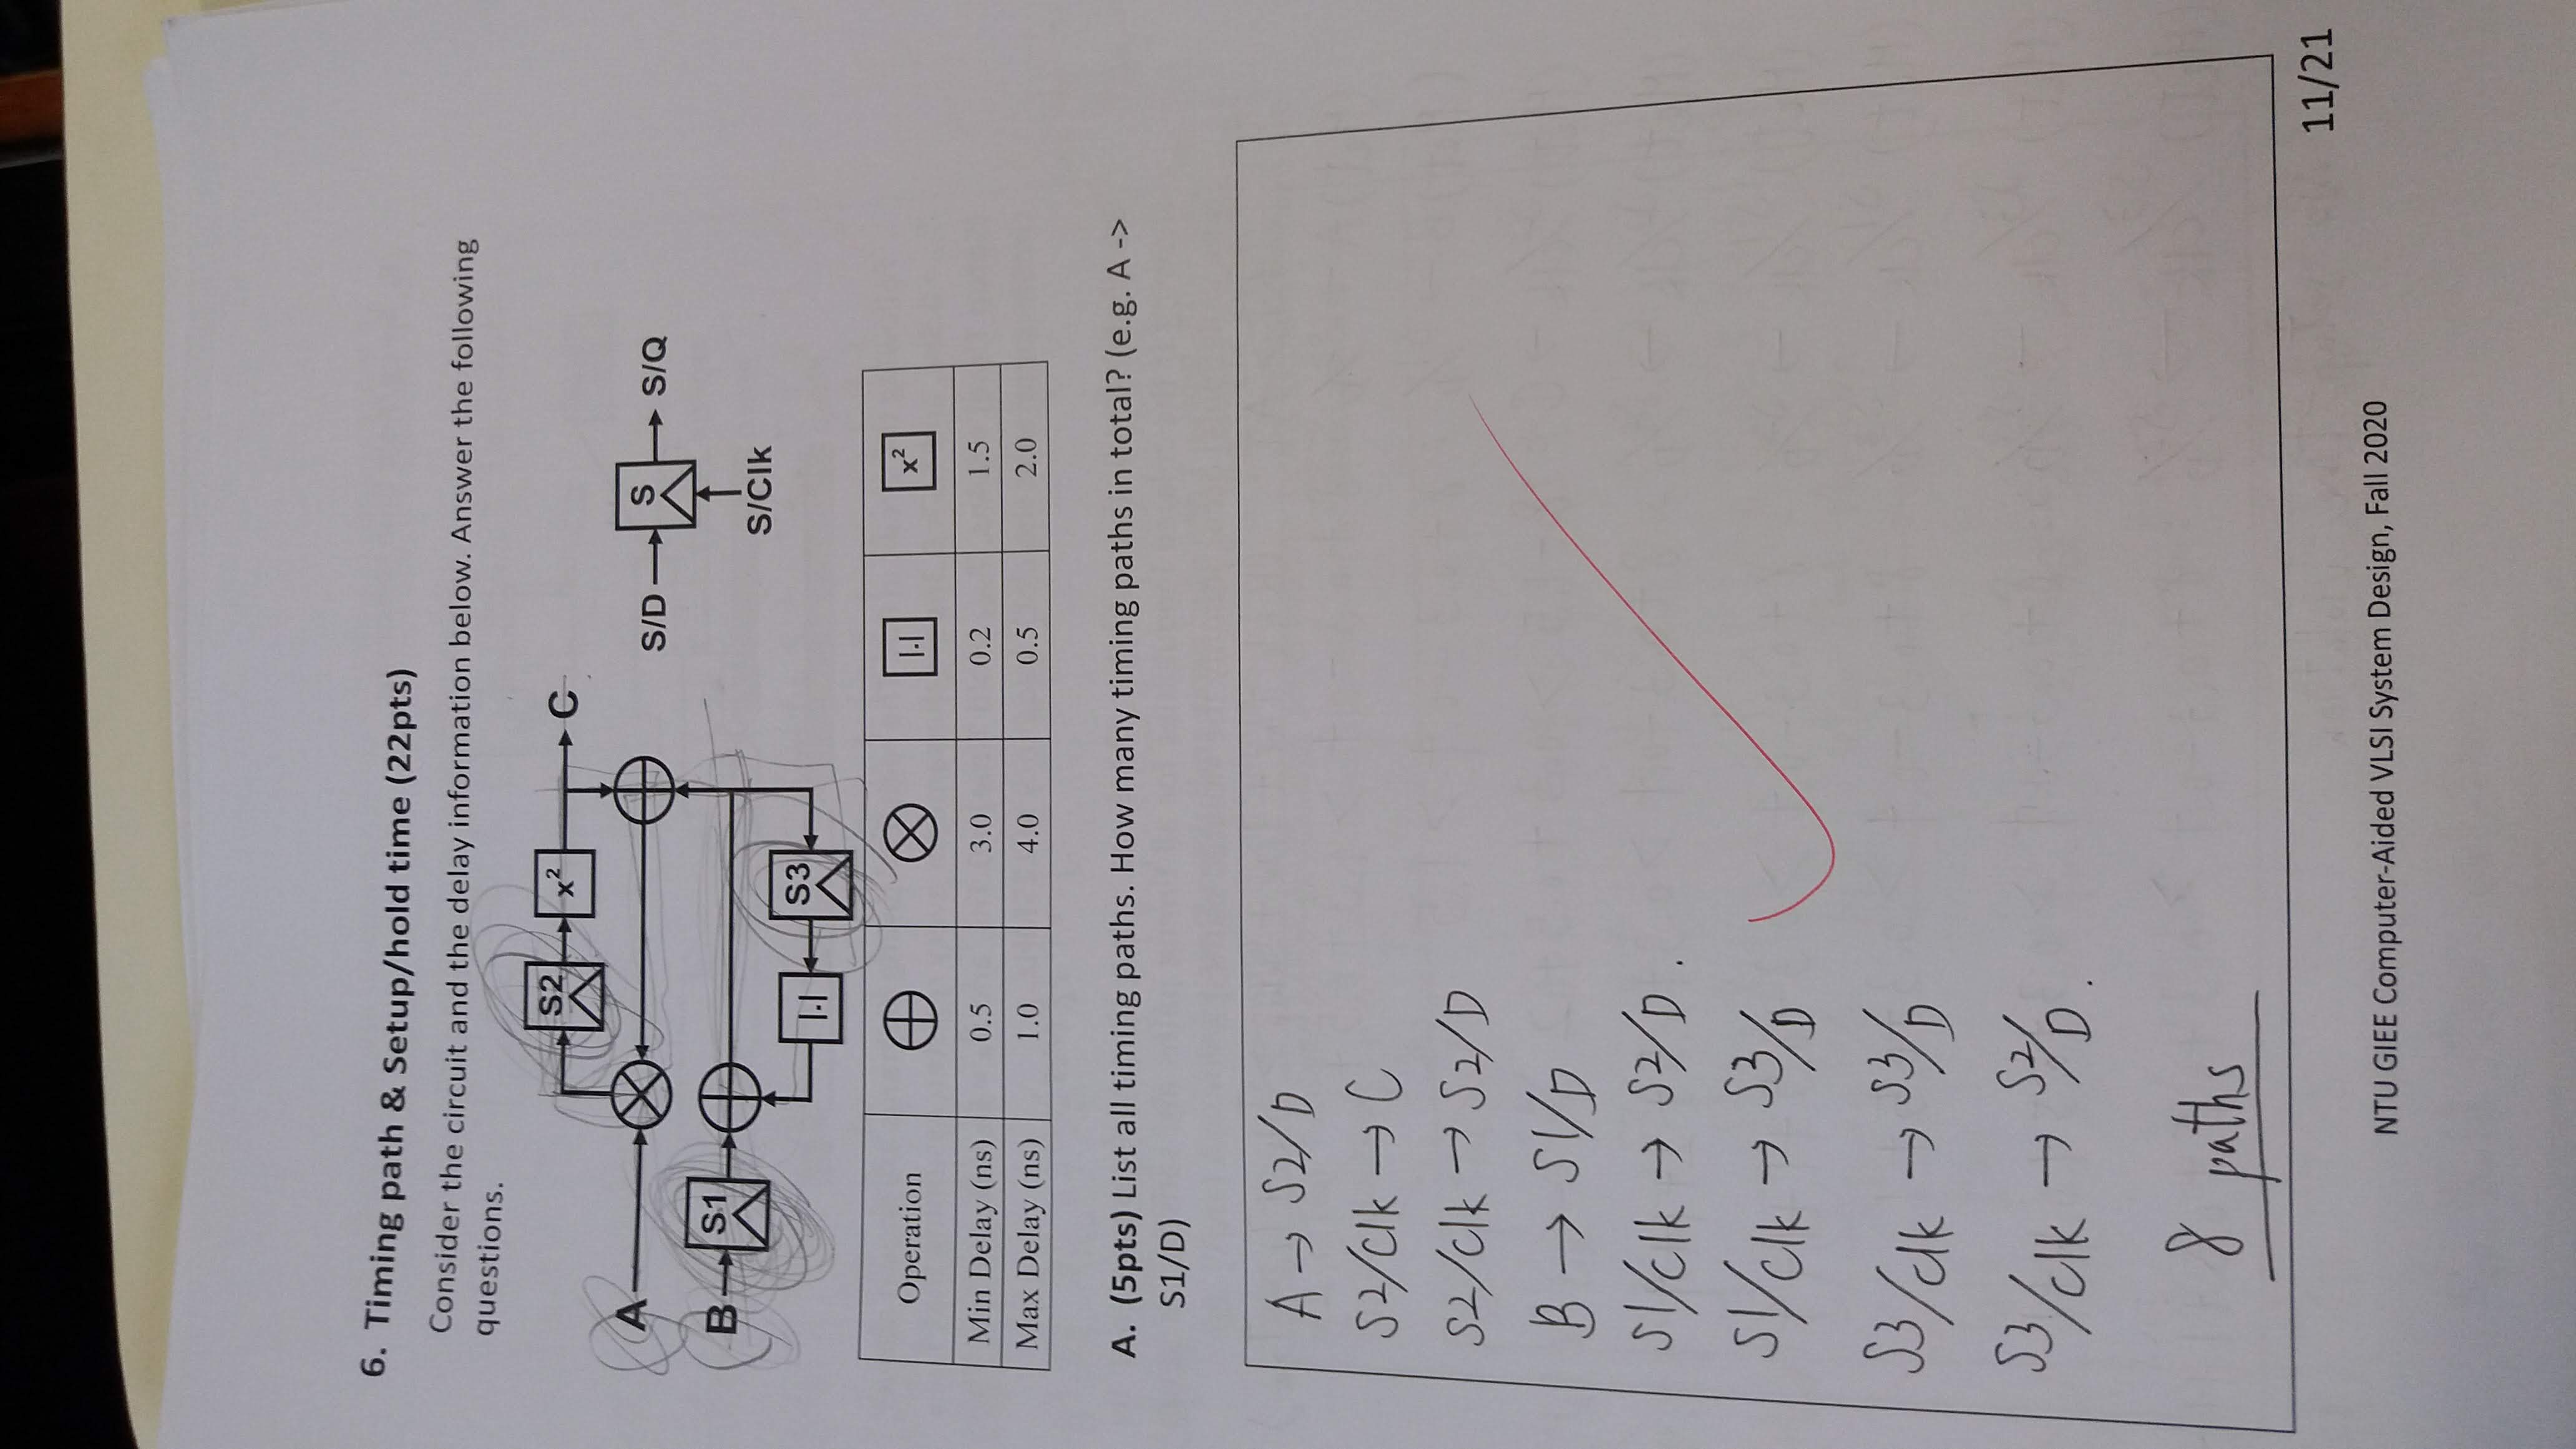 6. Timing path & Setup/hold time (22pts)
Consider the circuit and the delay information below. Answer the following
questions.
S2
x²
C
A
S/D
S
S/Q
B
S1
S/Clk
|.|
S3
Operation
|.|
x²
Min Delay (ns) 0.5 3.0 0.2 1.5
Max Delay (ns) 1.0 4.0 0.5 2.0
A. (5pts) List all timing paths. How many timing paths in total? (e.g. A ->
S1/D)
A → S2/D
S2/Clk → C
S2/Clk → S2/D
B → S1/D
S1/Clk → S2/D.
S1/Clk → S3/D
S3/Clk → S3/D
S3/Clk → S2/D.
8 paths
11/21
NTU GIEE Computer-Aided VLSI System Design, Fall 2020